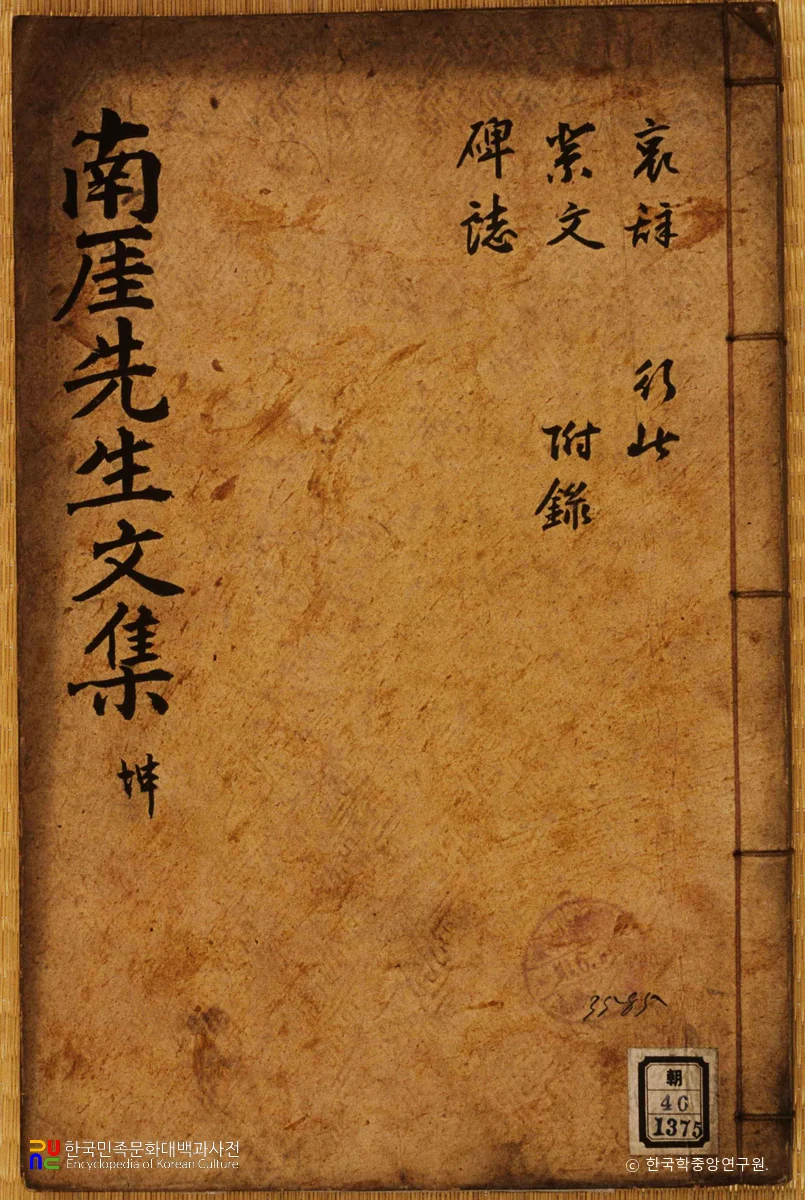 哀辞 行狀
祭文 附錄
碑誌
南厓先生文集 坤
3585
朝
46
1375
한국민족문화대백과사전
Encyclopedia of Korean Culture
© 한국학중앙연구원.